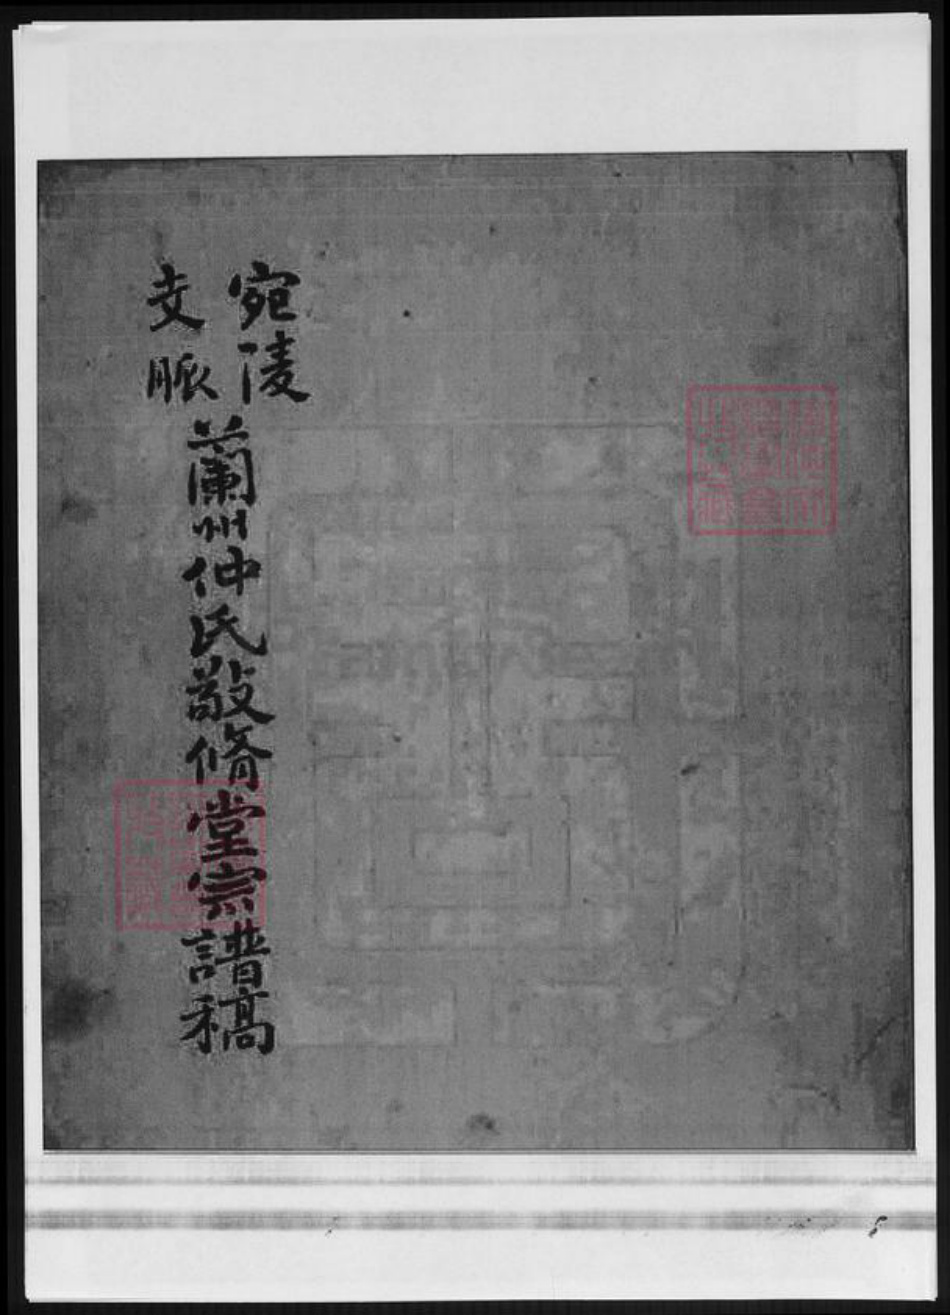 宛陵
支脈
蘭州仲氏敬脩堂宗譜稿